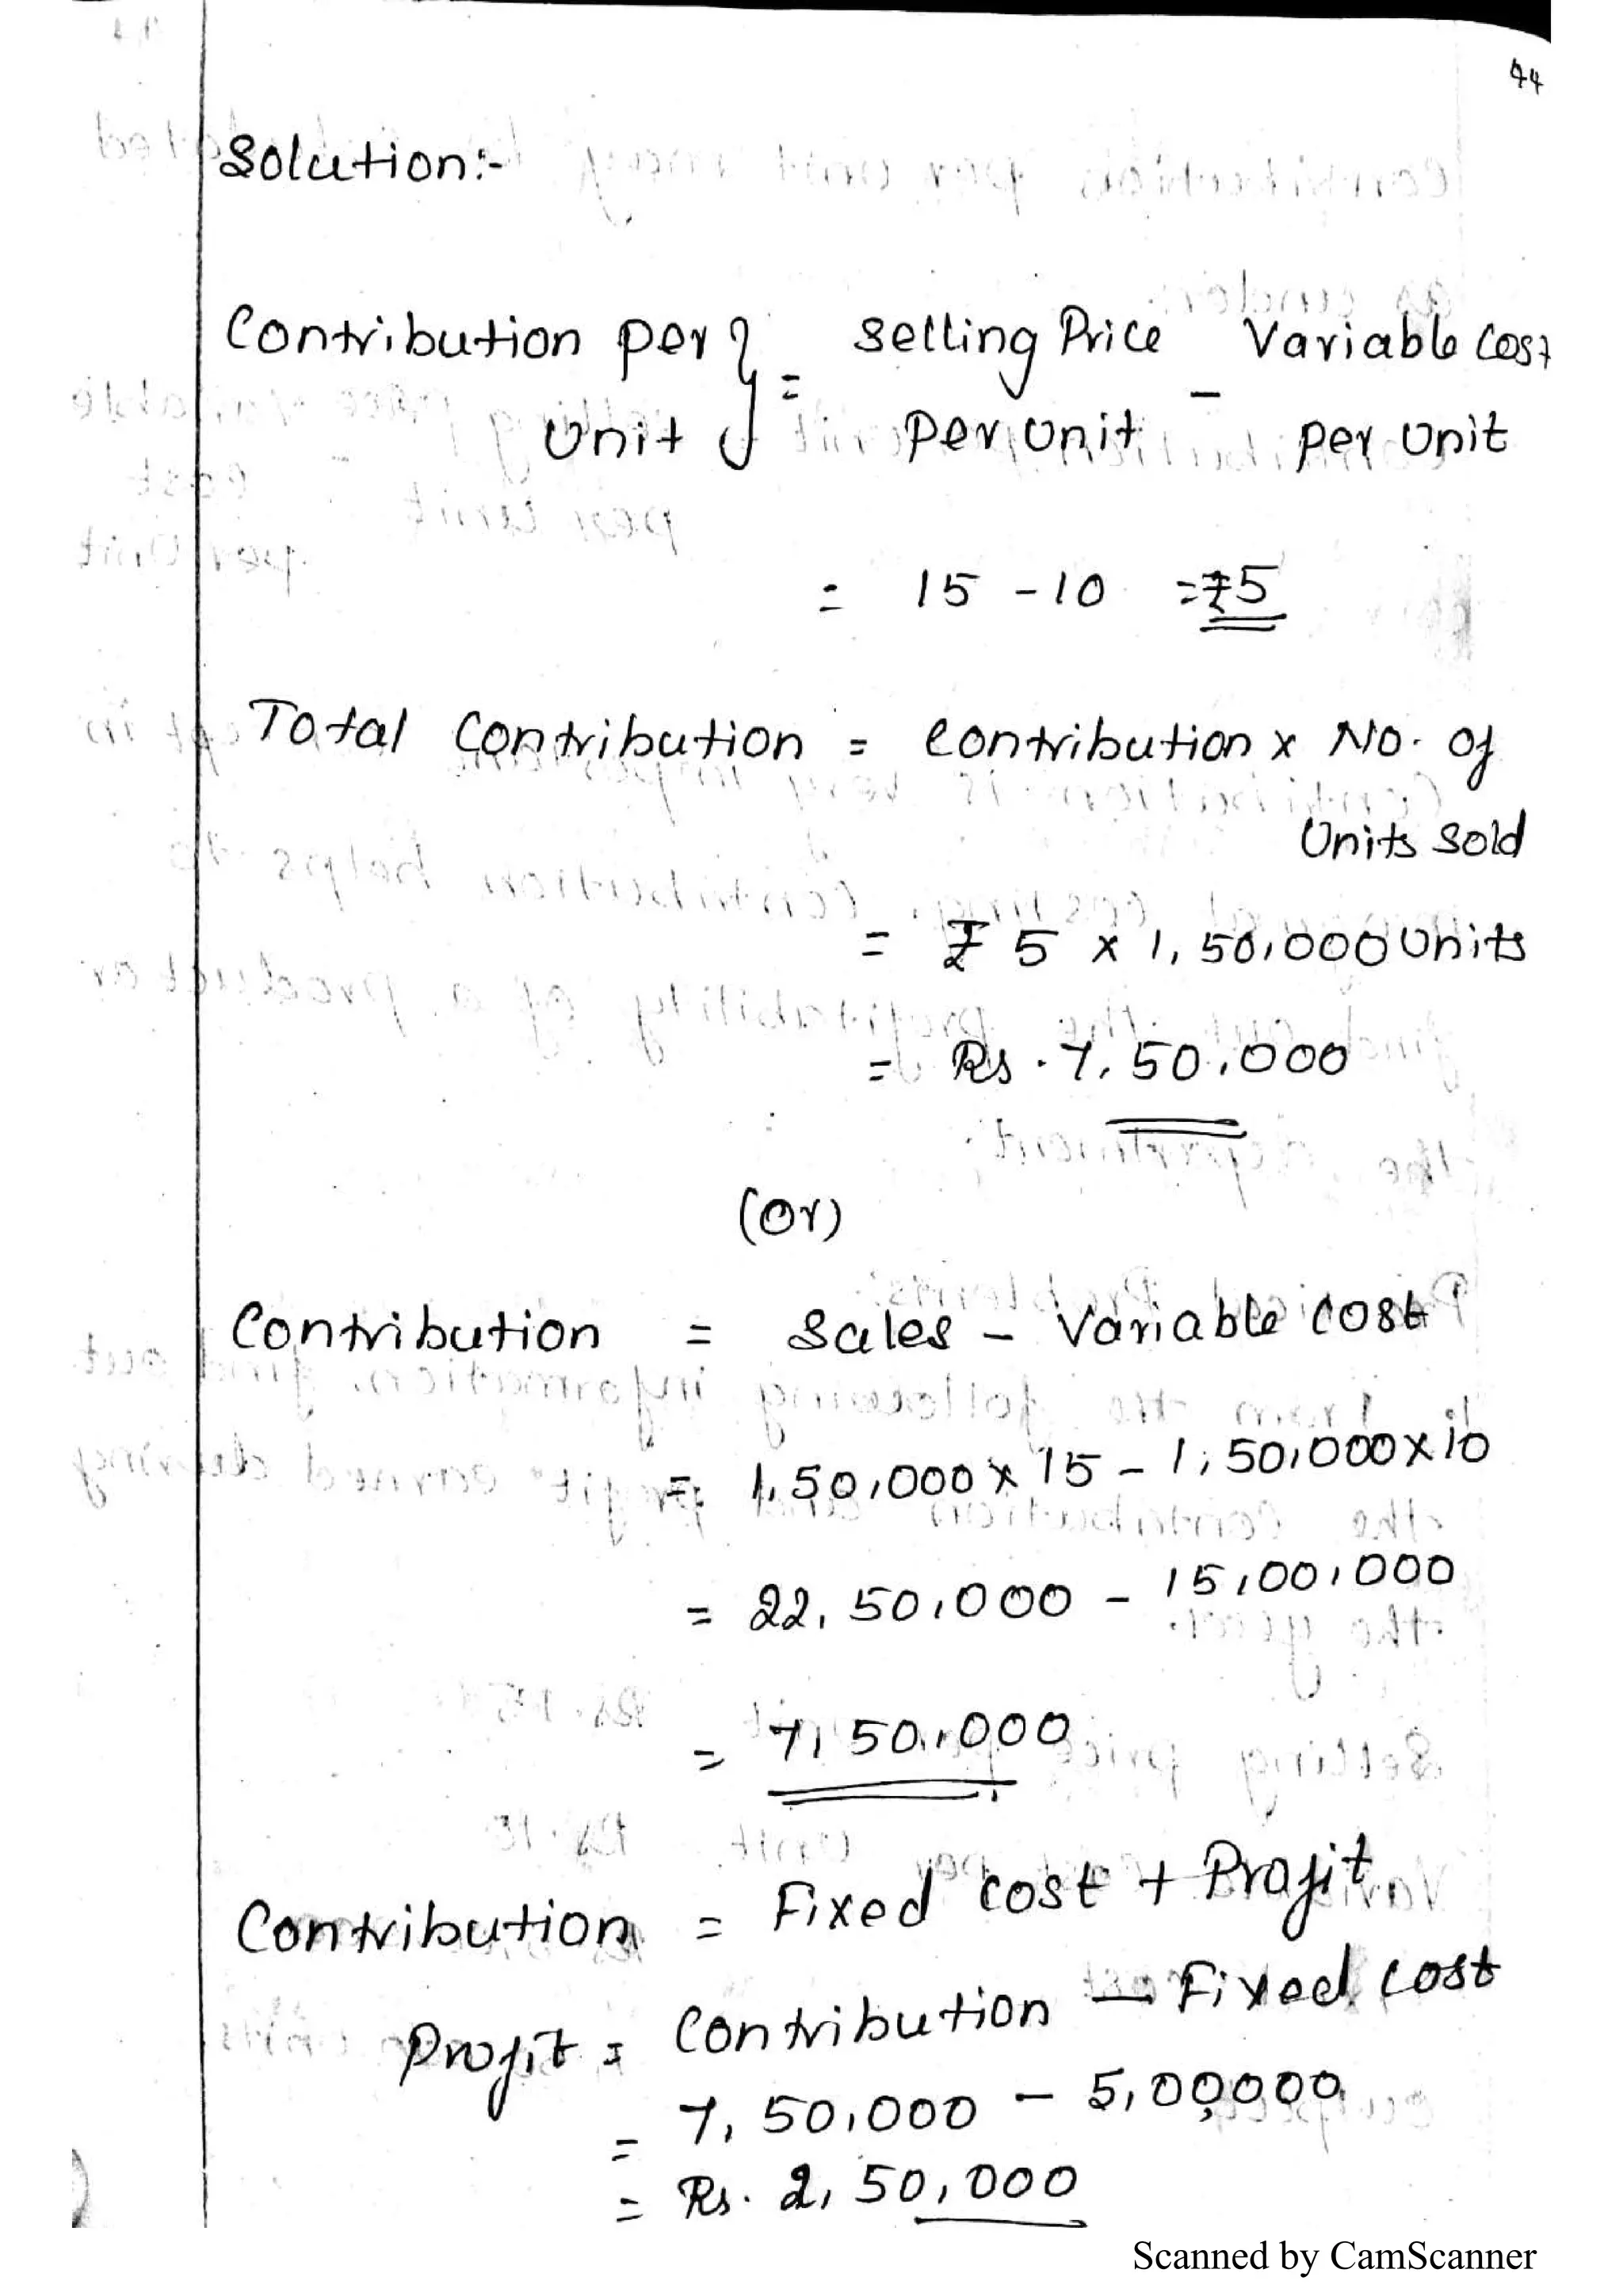 44
Solution:-
Contribution per } = Selling Price - Variable Cost
Unit per unit per unit
= 15 - 10 = ₹5
Total Contribution = Contribution x No. of
Units Sold
= ₹ 5 x 1,50,000 Units
= Rs. 7,50,000
(Or)
Contribution = Sales - Variable cost
= 1,50,000 x 15 - 1,50,000 x 10
= 22,50,000 - 15,00,000
= 7,50,000
Contribution = Fixed cost + Profit
Profit = Contribution - Fixed cost
= 7,50,000 - 5,00,000
= Rs. 2,50,000
Scanned by CamScanner